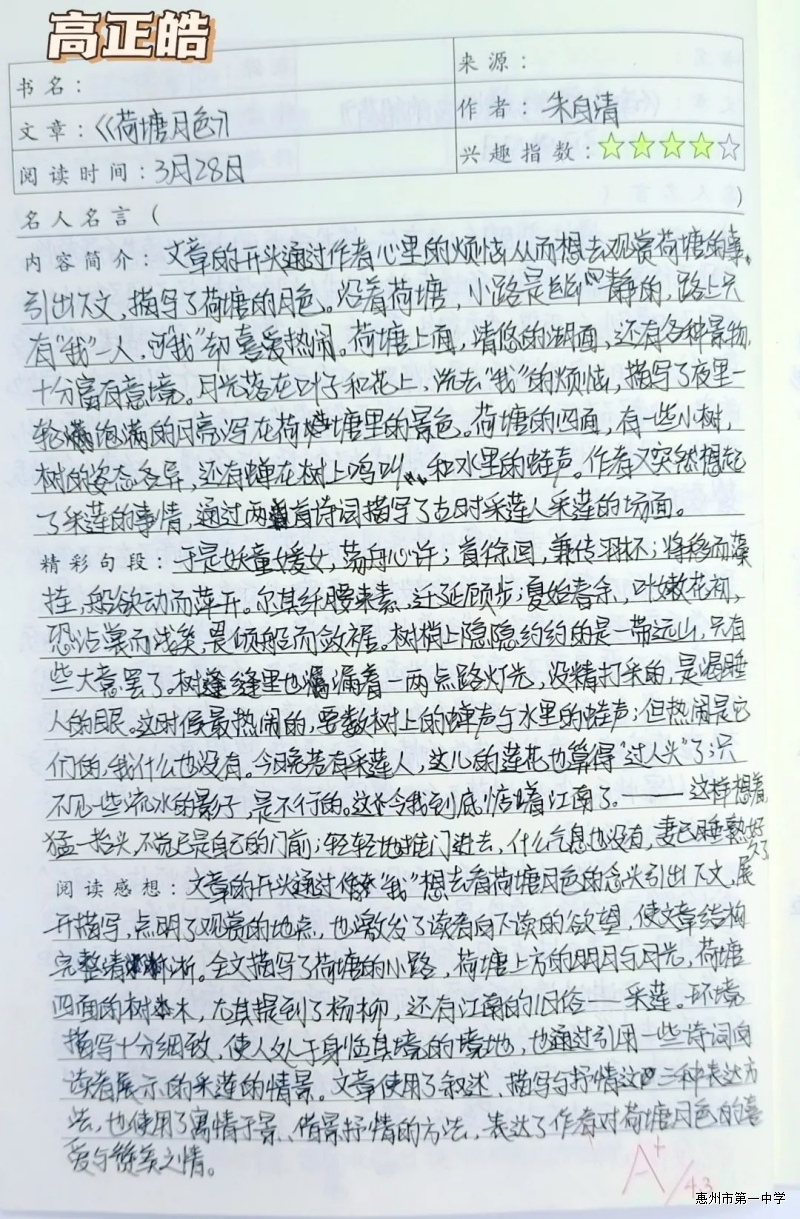 高正皓
书名：
来源：
文章：《荷塘月色》
作者：朱自清
阅读时间：3月28日
兴趣指数：☆☆☆☆☆
名人名言（ ）
内容简介：文章的开头通过作者心里的烦恼从而想去观赏荷塘的事，
引出下文，描写了荷塘的月色。沿着荷塘，小路是幽静的，路上只
有"我"一人，可"我"却喜爱热闹。荷塘上面，清悠的湖面，还有各种景物，
十分富有意境。月光落在叶子和花上，洗去"我"的烦恼，描写了夜里一
轮饱满的月亮泻在荷塘里的景色。荷塘的四面，有一些小树，
树的姿态各异，还有蝉在树上鸣叫，和水里的蛙声。作者又突然想起
了采莲的事情，通过两首诗词描写了古时采莲人采莲的场面。
精彩句段：于是妖童媛女，荡舟心许；首徐回，兼传羽杯；将移而藻
挂，船欲动而萍开。尔其纤腰束素，迁延顾步；夏始春余，叶嫩花初，
恐沾裳而浅笑，畏倾船而敛裾。树梢上隐隐约约的是一带远山，只有
些大意罢了。树缝里也漏着一两点路灯光，没精打采的，是渴睡
人的眼。这时候最热闹的，要数树上的蝉声与水里的蛙声；但热闹是它
们的，我什么也没有。今晚若有采莲人，这儿的莲花也算得"过人头"了；只
不见一些流水的影子，是不行的。这令我到底惦着江南了。——这样想着，
猛一抬头，不觉已是自己的门前；轻轻地推门进去，什么气息也没有，妻已睡熟好
久了
阅读感想：文章的开头通过"我"想去看荷塘月色的念头引出下文，展
开描写，点明了观赏的地点，也激发了读者向下读的欲望，使文章结构
完整清晰。全文描写了荷塘的小路，荷塘上方的明月与月光，荷塘
四面的树木，尤其提到了杨柳，还有江南的旧俗——采莲。环境
描写十分细致，使人处于身临其境的境地，也通过引用一些诗词向
读者展示的采莲的情景。文章使用了叙述、描写与抒情这三种表达方
法，也使用了寓情于景、借景抒情的方法，表达了作者对荷塘月色的喜
爱与赞美之情。
A+
4.3
惠州市第一中学